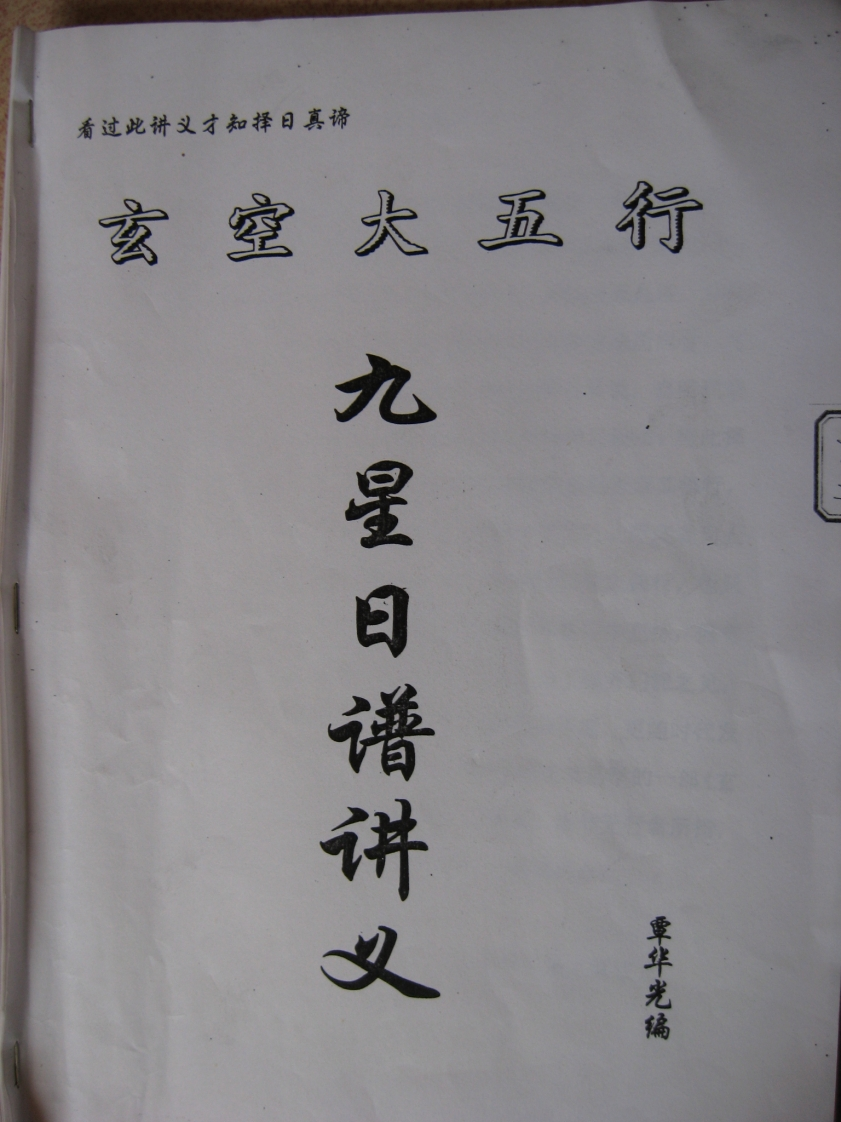 看过此讲义才知择日真谛
玄空大五行
九星日谱讲义
覃华光编